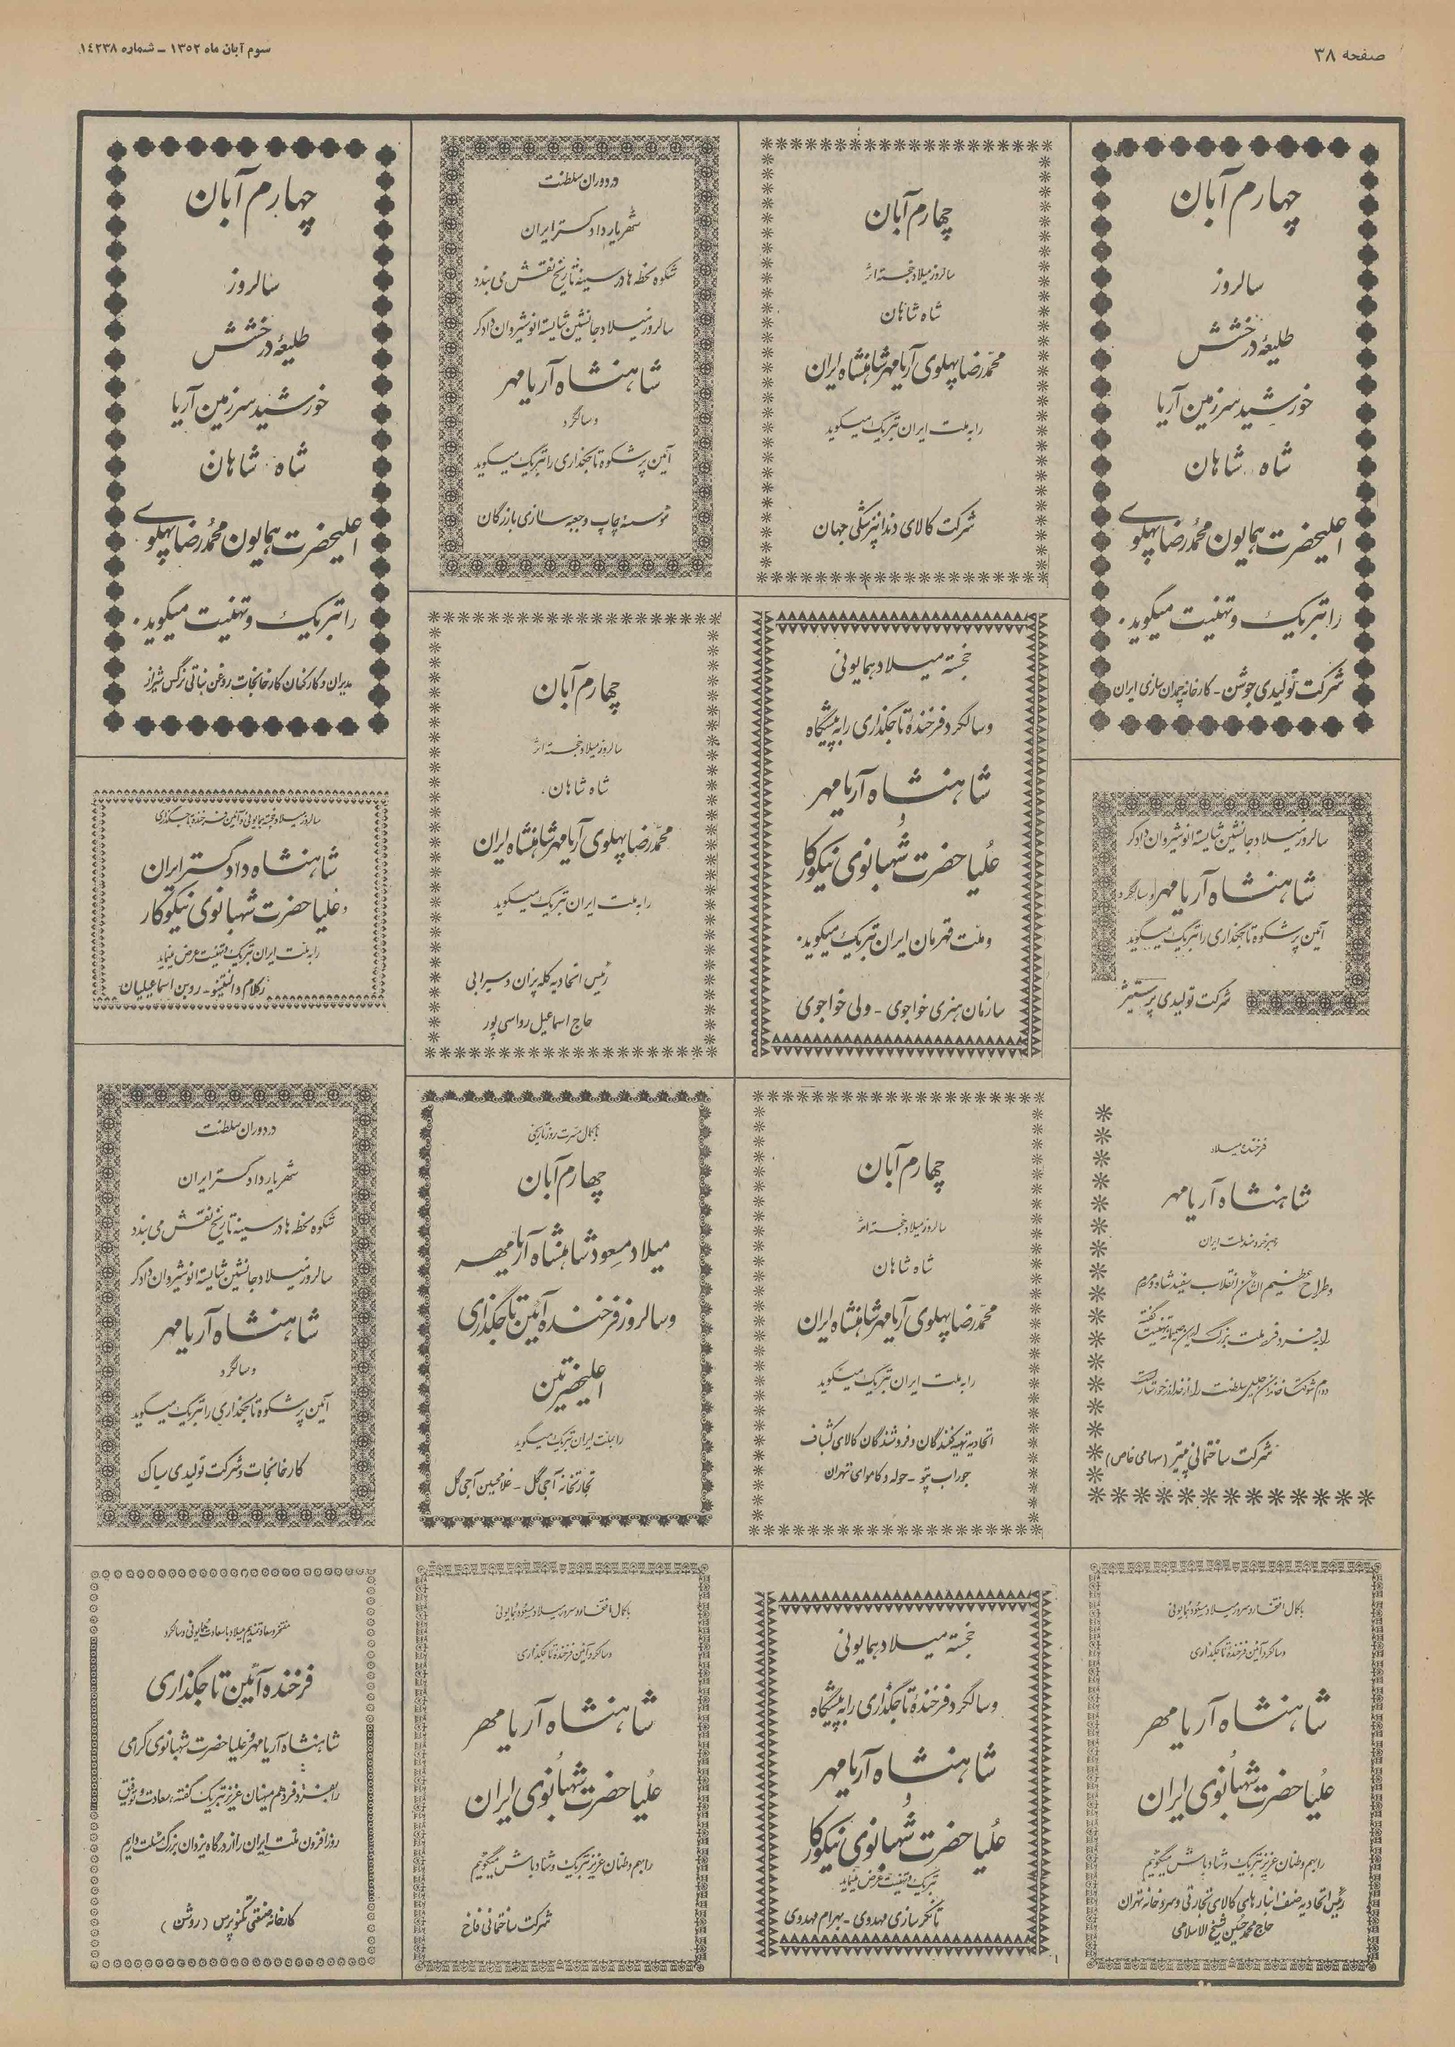 صفحه ۳۸
سوم آبان ماه ۱۳۵۲ - شماره ۱٤۲۳۸
چهارم آبان
سالروز
طلیعه درخشش
خورشید سرزمین آریا
شاه شاهان
اعلیحضرت همایون محمدرضا پهلوی
را تبریک و تهنیت میگوید.
شرکت تولیدی جوشن - کارخانه چمدان سازی ایران
سالروز میلاد جانشین شایسته انوشیروان دادگر
شاهنشاه آریامهر و سالگرد
آئین پرشکوه تاجگذاری را تبریک میگوید
شرکت تولیدی پرستیژ
فرخنده میلاد
شاهنشاه آریامهر
رهبر خردمند ملت ایران
و طراح عظیم الشأن انقلاب سفید شاه و مردم
را بفرد فرد ملت بزرگ ایران تهنیت گفته
شرکت ساختمانی پیتر (سهامی خاص)
با کمال افتخار و سرور میلاد مسعود همایونی
و سالگرد آئین فرخنده تاجگذاری
شاهنشاه آریامهر
علیا حضرت شهبانوی ایران
را بهم وطنان عزیز تبریک و شاد باش میگوئیم
رئیس اتحادیه صنف انبارهای کالای تجارتی و سردخانه تهران
حاج محمد حسین شیخ الاسلامی
چهارم آبان
سالروز میلاد خجسته اثر
شاه شاهان
محمدرضا پهلوی آریامهر شاهنشاه ایران
را به ملت ایران تبریک میگوید
شرکت کالای دندانپزشکی جهان
خجسته میلاد همایونی
و سالگرد فرخنده تاجگذاری را به پیشگاه
شاهنشاه آریامهر
و
علیا حضرت شهبانوی نیکوکار
و ملت قهرمان ایران تبریک میگوید.
سازمان هنری خواجوی - ولی خواجوی
چهارم آبان
سالروز میلاد خجسته اثر
شاه شاهان
محمدرضا پهلوی آریامهر شاهنشاه ایران
را به ملت ایران تبریک میگوید
اتحادیه تهیه کنندگان و فروشندگان کالای کشباف
جوراب پتو - حوله و کاموای تهران
خجسته میلاد همایونی
و سالگرد فرخنده تاجگذاری را به پیشگاه
شاهنشاه آریامهر
و
علیا حضرت شهبانوی نیکوکار
تبریک و تهنیت عرض مینماید
تانکر سازی مهدوی - بهرام مهدوی
در دوران سلطنت
شهریار دادگستر ایران
شکوه لحظه ها در سینه تاریخ نقش می بندد
سالروز میلاد جانشین شایسته انوشیروان دادگر
شاهنشاه آریامهر
و سالگرد
آئین پرشکوه تاجگذاری را تبریک میگوید
موسسه چاپ و جعبه سازی بازرگان
چهارم آبان
سالروز میلاد خجسته اثر
شاه شاهان.
محمدرضا پهلوی آریامهر شاهنشاه ایران
را به ملت ایران تبریک میگوید
رئیس اتحادیه کله پزان و سیرابی
حاج اسماعیل رواسی پور
با کمال مسرت روز تاریخی
چهارم آبان
میلاد مسعود شاهنشاه آریامهر
و سالروز فرخنده آئین تاجگذاری
اعلیحضرتین
را بملت ایران تبریک میگوید
تجارتخانه آجی گل - غلامحسین آجی گل
با کمال افتخار و سرور میلاد مسعود همایونی
و سالگرد آئین فرخنده تاجگذاری
شاهنشاه آریامهر
علیا حضرت شهبانوی ایران
را بهم وطنان عزیز تبریک و شاد باش میگوئیم
شرکت ساختمانی فاخ
چهارم آبان
سالروز
طلیعه درخشش
خورشید سرزمین آریا
شاه شاهان
اعلیحضرت همایون محمدرضا پهلوی
را تبریک و تهنیت میگوید.
مدیران و کارکنان کارخانجات روغن نباتی نرگس شیراز
سالروز میلاد خجسته همایونی و آئین فرخنده تاجگذاری
شاهنشاه دادگستر ایران
و علیا حضرت شهبانوی نیکوکار
را به ملت ایران تبریک و تهنیت عرض مینماید
رکلام والنتینو - روبن اسماعیلیان
در دوران سلطنت
شهریار دادگستر ایران
شکوه لحظه ها در سینه تاریخ نقش می بندد
سالروز میلاد جانشین شایسته انوشیروان دادگر
شاهنشاه آریامهر
و سالگرد
آئین پرشکوه تاجگذاری را تبریک میگوید
کارخانجات و شرکت تولیدی سیاک
مفتخر و سعادتمندیم میلاد با سعادت همایونی و سالگرد
فرخنده آئین تاجگذاری
شاهنشاه آریامهر و علیا حضرت شهبانوی گرامی
را بفرد فرد هم میهنان عزیز تبریک گفته، سعادت و توفیق
روزافزون ملت ایران را از درگاه یزدان بزرگ مسئلت داریم
کارخانه صنعتی تکنوپرس (روشن)